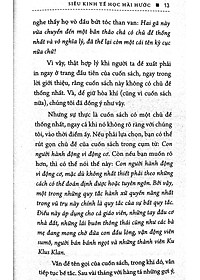 SIÊU KINH TẾ HỌC HÀI HƯỚC ■ 13
nghe thấy họ vò đầu bứt tóc than van: Hai gã này
vừa chuyển đến một bản thảo chả có chủ đề thống
nhất và vô nghĩa lý, đã thế lại còn một cái tên kỳ cục
nữa chứ!
Vì vậy, thật hợp lý khi người ta đề xuất phải
ngay ở trang đầu tiên của cuốn sách, ngay trong
lời giới thiệu, rằng cuốn sách này không có chủ đề
thống nhất. Và, để giữ hòa khí (cũng vì cuốn sách
nữa), chúng tôi đã đồng ý như vậy.
Nhưng sự thực là cuốn sách có một chủ đề
thống nhất, ngay cả khi nó không rõ ràng với chúng
tôi, vào thời điểm ấy. Nếu phải lựa chọn, bạn có thể
rút gọn chủ đề của cuốn sách trong cụm từ: Con
người hành động vì động cơ. Còn nếu bạn muốn rõ
hơn, thì có thể nói thế này: Con người hành động
vì động cơ, mặc dù không nhất thiết phải theo những
cách có thể đoán định được hoặc tuyên ngôn. Bởi vậy,
một trong những quy tắc hành xử quyền năng nhất
trong vũ trụ này chính là quy tắc của sự bất quy tắc.
Điều này áp dụng cho cả giáo viên, những tay đầu cơ
nhà đất, những lái buôn thông thái cũng như các bà
mẹ đang mong chờ đứa con đầu lòng, động viên viên
sumô, người bán bánh ngọt và những thành viên Ku
Klux Klan.
Vấn đề tên gọi của cuốn sách, trong khi đó, vẫn
tiếp tục bế tắc. Sau vài tháng với hàng tá những gợi